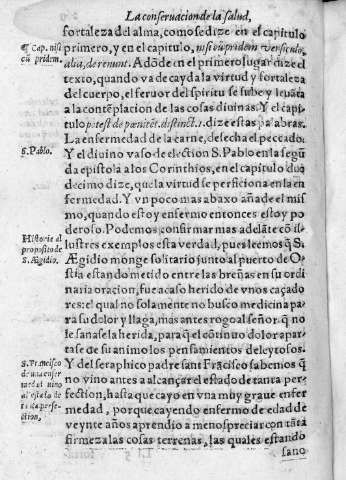 La conseruacion de la salud,
fortaleza del alma, como se dize en el capitulo
¶ Cap. nisi
cũ pridem.
primero, y en el capitulo, nisi cũ pridem versiculo
alia, de renunt. Adõde en el primero lugar dize el
texto, quando va de cayda la virtud y fortaleza
del cuerpo, el feruor del spiritu se sube y leuãta
a la contẽplacion de las cosas diuinas. Y el capi-
tulo potest de pœnitẽt. distinct. 1. dize estas palabras.
La enfermedad de la carne, desecha el peccado.
S. Pablo.
Y el diuino vaso de election S. Pablo en la segũ
da epistola a los Corinthios, en el capitulo duo
decimo dize, que la virtud se perficiona en la en
fermedad. Y vn poco mas abaxo añade el mis-
mo, quando estoy enfermo entonces estoy po
deroso. Podemos confirmar mas adelãte cõ il-
Historia al
proposito de
S. Ægidio.
lustres exemplos esta verdad, pues leemos q̃ S.
Ægidio monge solitario junto al puerto de O-
stia estando metido entre las breñas en su ordi
naria oracion, fue acaso herido de vnos caçado
res: el qual no solamente no busco medicina pa
ra su dolor y llaga, mas antes rogo al señor q̃ no
le sanase la herida, para q̃ el cõtinuo dolor apar-
tase de su animo los pensamientos deleytosos.
S. Francisco
de vna enfer
medad vino
al estado de
Y del seraphico padre sant Frãcisco sabemos q̃
no vino antes a alcançar el estado de tanta per-
fection, hasta que cayo en vna muy graue enfer
medad, porque cayendo enfermo de edad de
veynte años aprendio a menospreciar con tãta
firmeza las cosas terrenas, las quales estando
sano